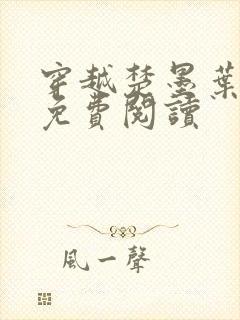 穿越楚墨葉
免費閱讀
風一聲